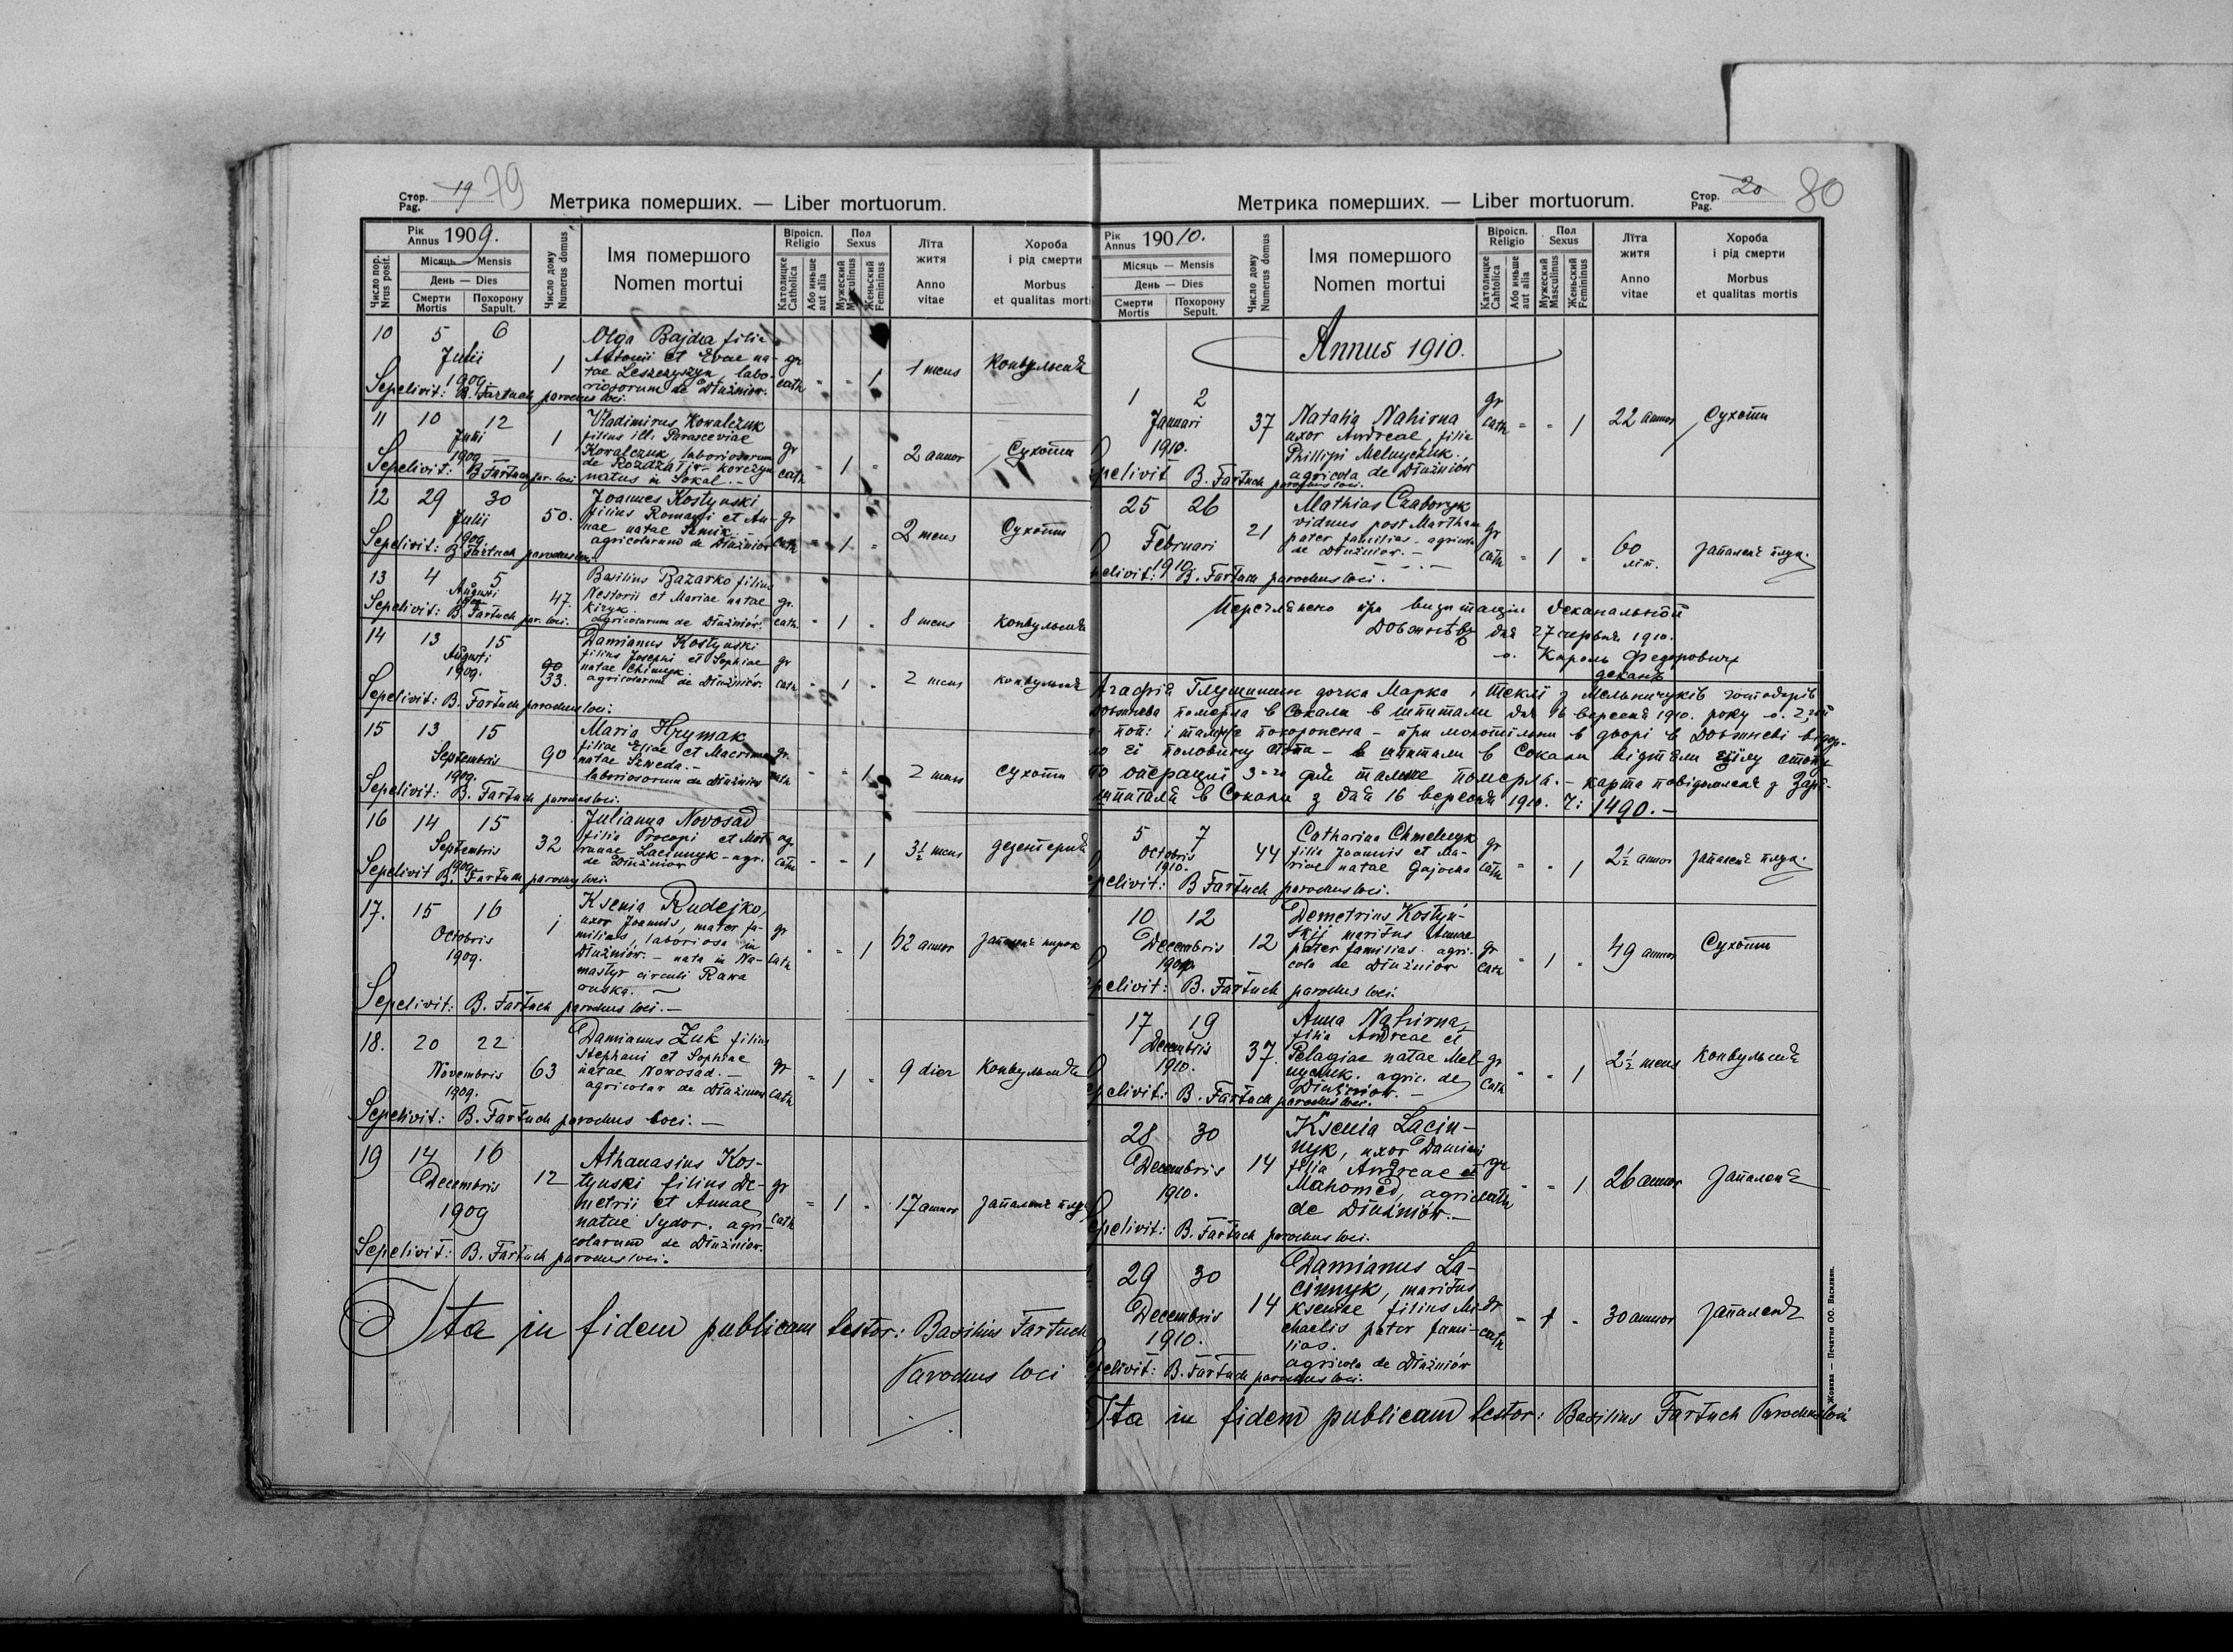 Стор. Pag. 19 79
Метрика померших. — Liber mortuorum.
Рік Annus 1909.
Число пор. Nrus posit.
Місяць — Mensis
День — Dies
Смерти Mortis
Похорону Sapult.
Число дому Numerus domus
Імя помершого
Nomen mortui
Віроісп. Religio
Католицке Catholica
Або иньше aut alia
Пол Sexus
Мужеский Masculinus
Женьский Femininus
Літа житя
Anno vitae
Хороба і рід смерти
Morbus et qualitas mortis
10 5 6 Julii 1909 1
Olga Bajda filia
Antonii et Evae na-
tae Leszczyszyn, labo-
riosorum de Dłużniow.
gr cath - - 1 1 mens Конвульсия
Sepelivit: B. Fartuch parochus loci.
11 10 12 Julii 1909 1
Vladimirus Kowalczuk
filius ill. Parasceviae
Kowalczuk, laboriosorum
natus in Sokal. -
gr cath - 1 - 2 annor Сухоти
Sepelivit: B Fartuch par. loci
12 29 30 Julii 1909 50.
Joannes Kostynski
filius Romani et An-
nae natae Semik. -
agricolarum de Dłużniow
gr cath - 1 - 2 mens Сухоти
Sepelivit: B Fartuch parochus loci.
13 4 5 Augusti 47.
Basilius Bazarko filius
Nestorii et Mariae natae
Kiryk.
agricolarum de Dłużniów.
gr. cath. - 1 - 8 mens конвульсия
Sepelivit: B. Fartuch par. loci.
14 13 15 Augusti 1909. 90 33.
Damianus Kostynski
filius Josephi et Sophiae
natae Chimyk.
agricolarum de Dłużniów.
gr cath - 1 - 2 mens конвульсия
Sepelivit: B. Fartuch parochus loci.
15 13 15 Septembris 1909. 90
Maria Hrymak
filiae Eliae et Macrinae
natae Seweda. -
laboriosorum de Dłużniow
gr. cath - - 1 2 mens сухоти
Sepelivit: B. Fartuch parochus loci.
16 14 15 Septembris 1909. 32
Julianna Novosad
filia Procopi et Mat-
ronae Lacinnyk - agr.
de Dłużniow
gr. cath - - 1 3½ mens дезентерия
Sepelivit B. Fartuch parochus loci.
17. 15 16 Octobris 1909. 1
Ksenia Rudejko,
uxor Joannis, mater fa-
milias, laboriosa in
Dłużniow. - nata in Na-
mastyr circuli Rawa
ruska. -
gr cath - - 1 62 annor запаленє нирок
Sepelivit: B. Fartuch parochus loci. -
18. 20 22 Novembris 1909. 63
Damianus Zuk filius
Stephani et Sophiae
natae Nowosad. -
agricolar de Dłużniow
gr cath - 1 - 9 dier Конвульсия
Sepelivit: B. Fartuch parochus loci. -
19 14 16 Decembris 1909 12
Athanasius Kos-
tynski filius De-
metrii et Annae
natae Sydor. agri-
colarum de Dłużniow.
gr cath - 1 - 17 annor запаленє плуц
Sepelivit: B. Fartuch parochus loci.
Ita in fidem publicam testor: Basilius Fartuch
Parochus loci
Метрика померших. — Liber mortuorum.
Стор. Pag. 20 80
Рік Annus 19010.
Місяць — Mensis
День — Dies
Смерти Mortis
Похорону Sepult.
Число дому Numerus domus
Імя помершого
Nomen mortui
Віроісп. Religio
Католицке Cahtolica
Або иньше aut alia
Пол Sexus
Мужеский Masculinus
Женьский Femininus
Літа житя
Anno vitae
Хороба і рід смерти
Morbus et qualitas mortis
Annus 1910.
1 2 Januari 1910. 37
Natalia Nahirna
uxor Andreae, filia
Phillipi Melnyczuk.,
agricola de Dłużniów
gr cath - - 1 22 annor Сухоти
pelivit B. Fartuch parochus loci.
25 26 Februari 1910 21
Mathias Czaboryk
viduus post Martham
pater familias - agricola
de Dłużniow. -
gr cath - 1 - 60 літ. запаленє плуц.
pelivit: B. Fartuch parochus loci.
Переглянено при визитации деканальной
Довжневѣ дня 27 червня 1910.
о. Кароль Федорович
деканъ
Агафія Глущишин дочка Марка і Теклі з Мельничуків господарів
Довжнева померла в Сокали в шпитали дня 16 вересня 1910. року о. 2
поп: і тамже похоронена - при молотільни в дворі в Довжневі
ло єї половину стопи - в шпитали в Сокали відтяли цілу стопу
по операциї дня также померла. - карта повідомленя з
шпиталя в Сокали з дня 16 вересня 1910. Ч: 1490. -
5 7 Octobris 1910. 44
Catharina Chmelnyk
filia Joannis et Ma-
riae natae Gajocha
gr cath - - 1 2½ annor запаленє плуц.
pelivit: B Fartuch parochus loci.
10 12 Decembris 12
Demetrius Kostyń-
skij maritus Annae
pater familias. agri-
cola de Dłużniow
gr cath - 1 - 49 annor Сухоти
pelivit: B. Fartuch parochus loci.
17 19 Decembris 1910. 37.
Anna Nahirna,
filia Andreae et
Pelagiae natae Mel-
nyczuk. agric. de
Dłużniow. -
gr cath - - 1 2½ mens конвульсия
epelivit: B. Fartuch parochus loci.
28 30 Decembris 1910. 14
Ksenia Lacin-
nyk, uxor Damiani
filia Andreae et
Mahomed, agricola
de Dłużniów. -
gr cath - - 1 26 annor Запаленє
epelivit: B. Fartuch parochus loci.
29 30 Decembris 1910. 14
Damianus La-
cinnyk, maritus
Kseniae filius Mi-
chaelis pater fami-
lias.
agricola de Dłużniów
gr cath - 1 - 30 annor Запаленє
epelivit: B. Fartuch parochus loci.
Ita in fidem publicam testor: Basilius Fartuch Parochus loci
Жовква — Печатня ОО. Василиян.